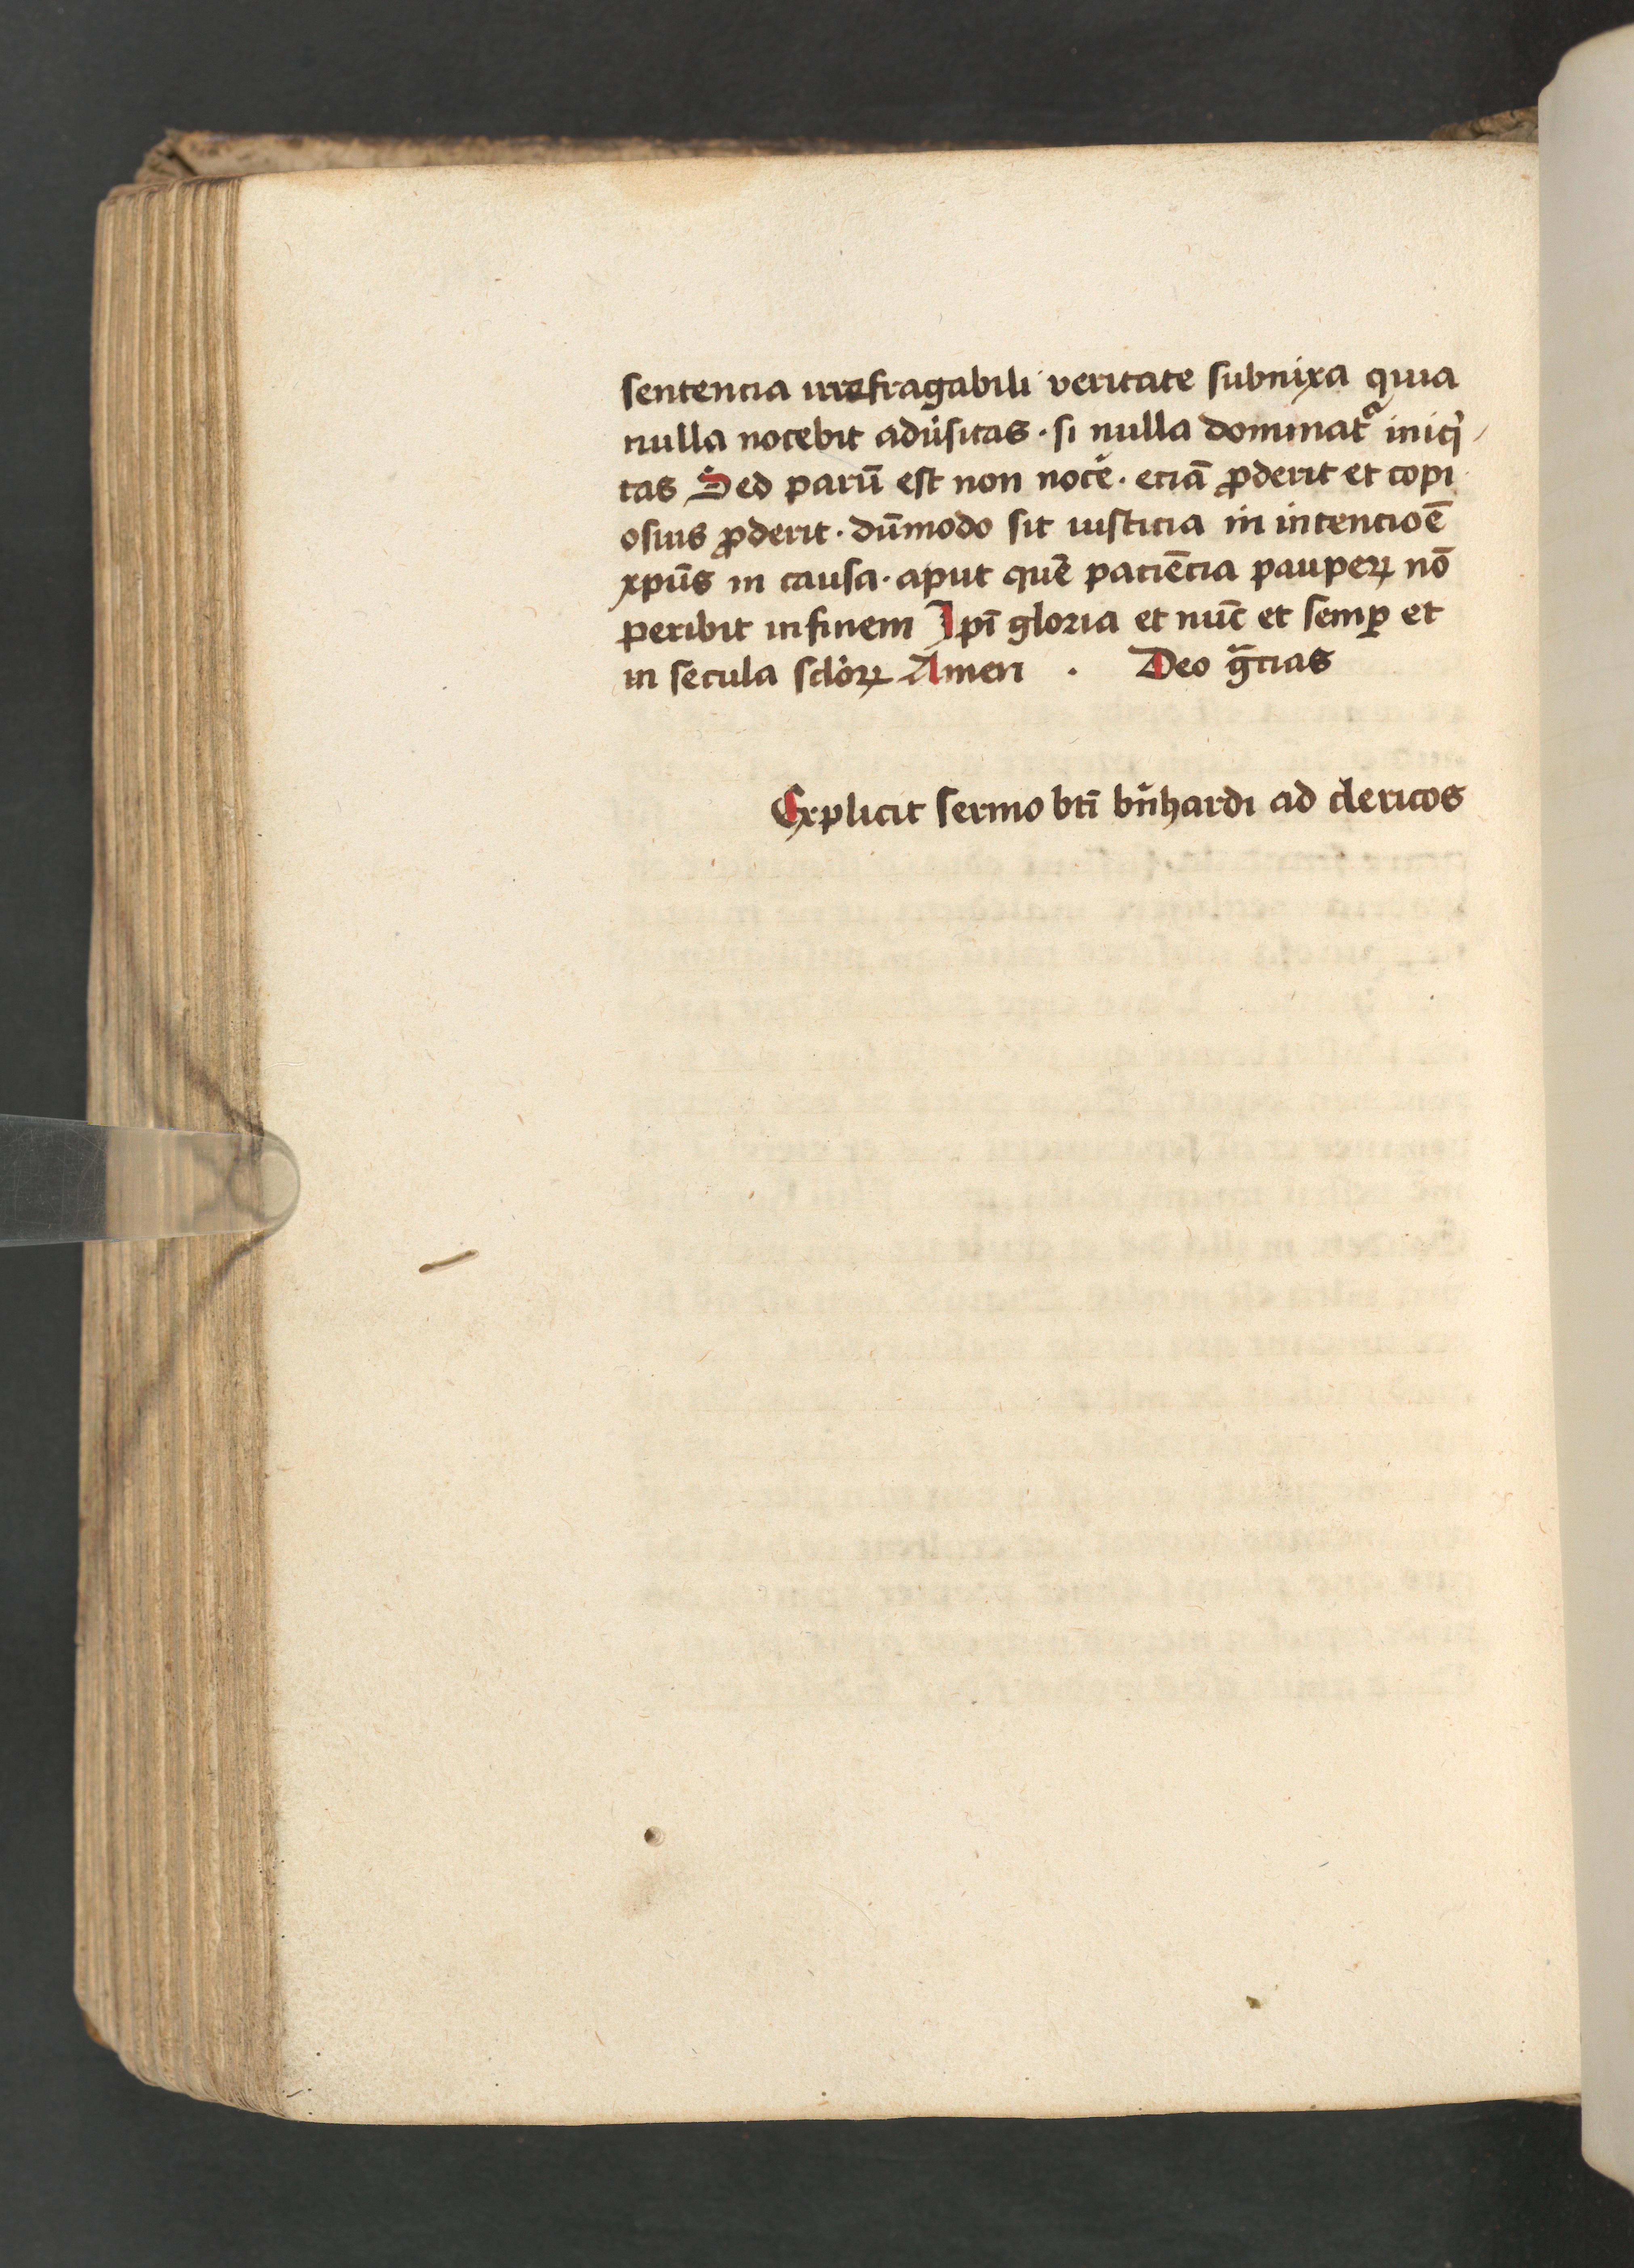 sentencia irrefragabili veritate subnixa quia
nulla nocebit adu͛sitas · si nulla dominatᷓ iniqͥ /
tas Sed parū est non noce͛ · eciā ꝓderit et copi
osius ꝓderit · dūmodo sit iusticia in intencioē
xpūs in causa · aput quē paciēcia pauperꝝ nō
peribit infinem Ipī gloria et nūc et semꝑ et
in secula sc̄loꝝ Amen . Deo gᷓcias
Explicit sermo btī bn̄hardi ad clericos